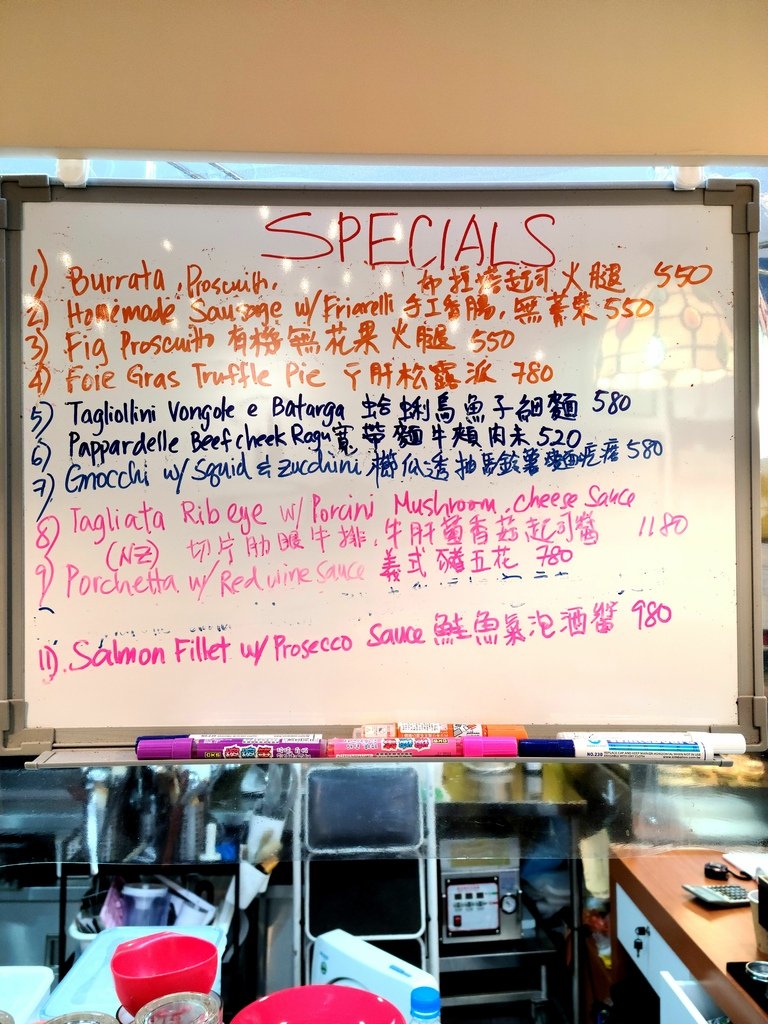 SPECIALS
1) Burrata, Proscuitto. 布拉塔起司火腿 550
2) Homemade Sausage w/ Friarelli 手工香腸, 無菁菜 550
3) Fig Proscuitto 有機無花果火腿 550
4) Foie Gras Truffle Pie 鴨肝松露派 780
5) Tagliollini Vongole e Batarga 蛤蜊烏魚子細麵 580
6) Pappardelle Beef cheek Ragu 寬帶麵牛頰肉末 520
7) Gnocchi w/ Squid & zucchini 櫛瓜透抽馬鈴薯麵疙瘩 580
8) Tagliata Rib eye w/ Porcini Mushroom, cheese Sauce
(NZ) 切片肋眼牛排, 牛肝菌香菇起司醬 1180
9) Porchetta w/ Red wine sauce 義式豬五花 780
11). Salmon Fillet w/ Prosecco Sauce 鮭魚氣泡酒醬 980
NO.230